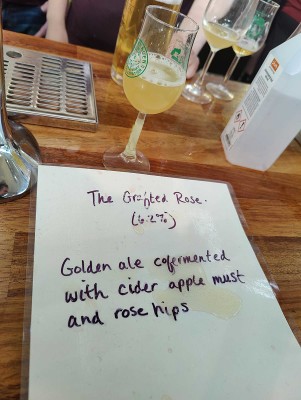 The Grafted Rose.
(6.2%)
Golden ale cofermented
with cider apple must
and rose hips